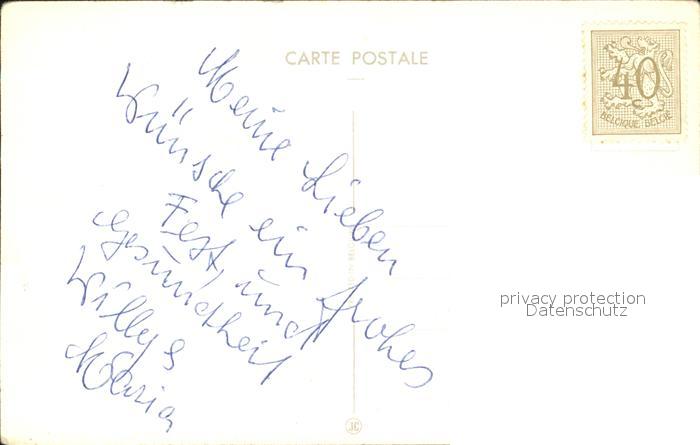 CARTE POSTALE
40
BELGIQUE-BELGIË
Meine Lieben
Wünsche ein frohes
Fest, und
Gesundheit
Willy &
Maria
privacy protection
Datenschutz
JC